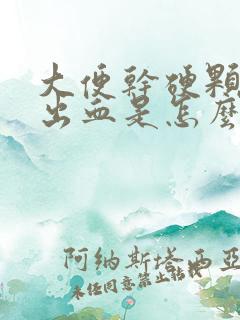 大便幹硬顆
出血是怎麼
阿纳斯塔西亚
未经同意禁止转载